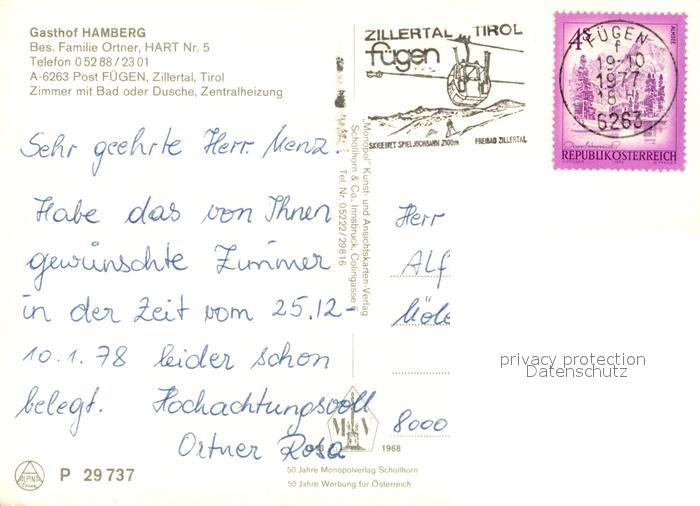 Gasthof HAMBERG
Bes. Familie Ortner, HART Nr. 5
Telefon 0 52 88 / 23 01
A-6263 Post FÜGEN, Zillertal, Tirol
Zimmer mit Bad oder Dusche, Zentralheizung
ZILLERTAL TIROL
fügen
SKIGEBIET SPIELJOCHBAHN 2100m FREIBAD ZILLERTAL
4S
FÜGEN
f
19-10
1977
18 H
6263
REPUBLIK ÖSTERREICH
Sehr geehrte Herr Menz.
Habe das von Ihnen
gewünschte Zimmer
in der Zeit vom 25.12-
10.1.78 leider schon
belegt. Hochachtungsvoll
Ortner Rosa
„Monopol" Kunst- und Ansichtskarten-Verlag
Schöllhorn & Co., Innsbruck, Colingasse
Tel. Nr. 05222/29816
Herr
Alf
8000
privacy protection
Datenschutz
M V
1968
50 Jahre Monopolverlag Schöllhorn
50 Jahre Werbung für Österreich
ALPINA
Druck
P 29 737